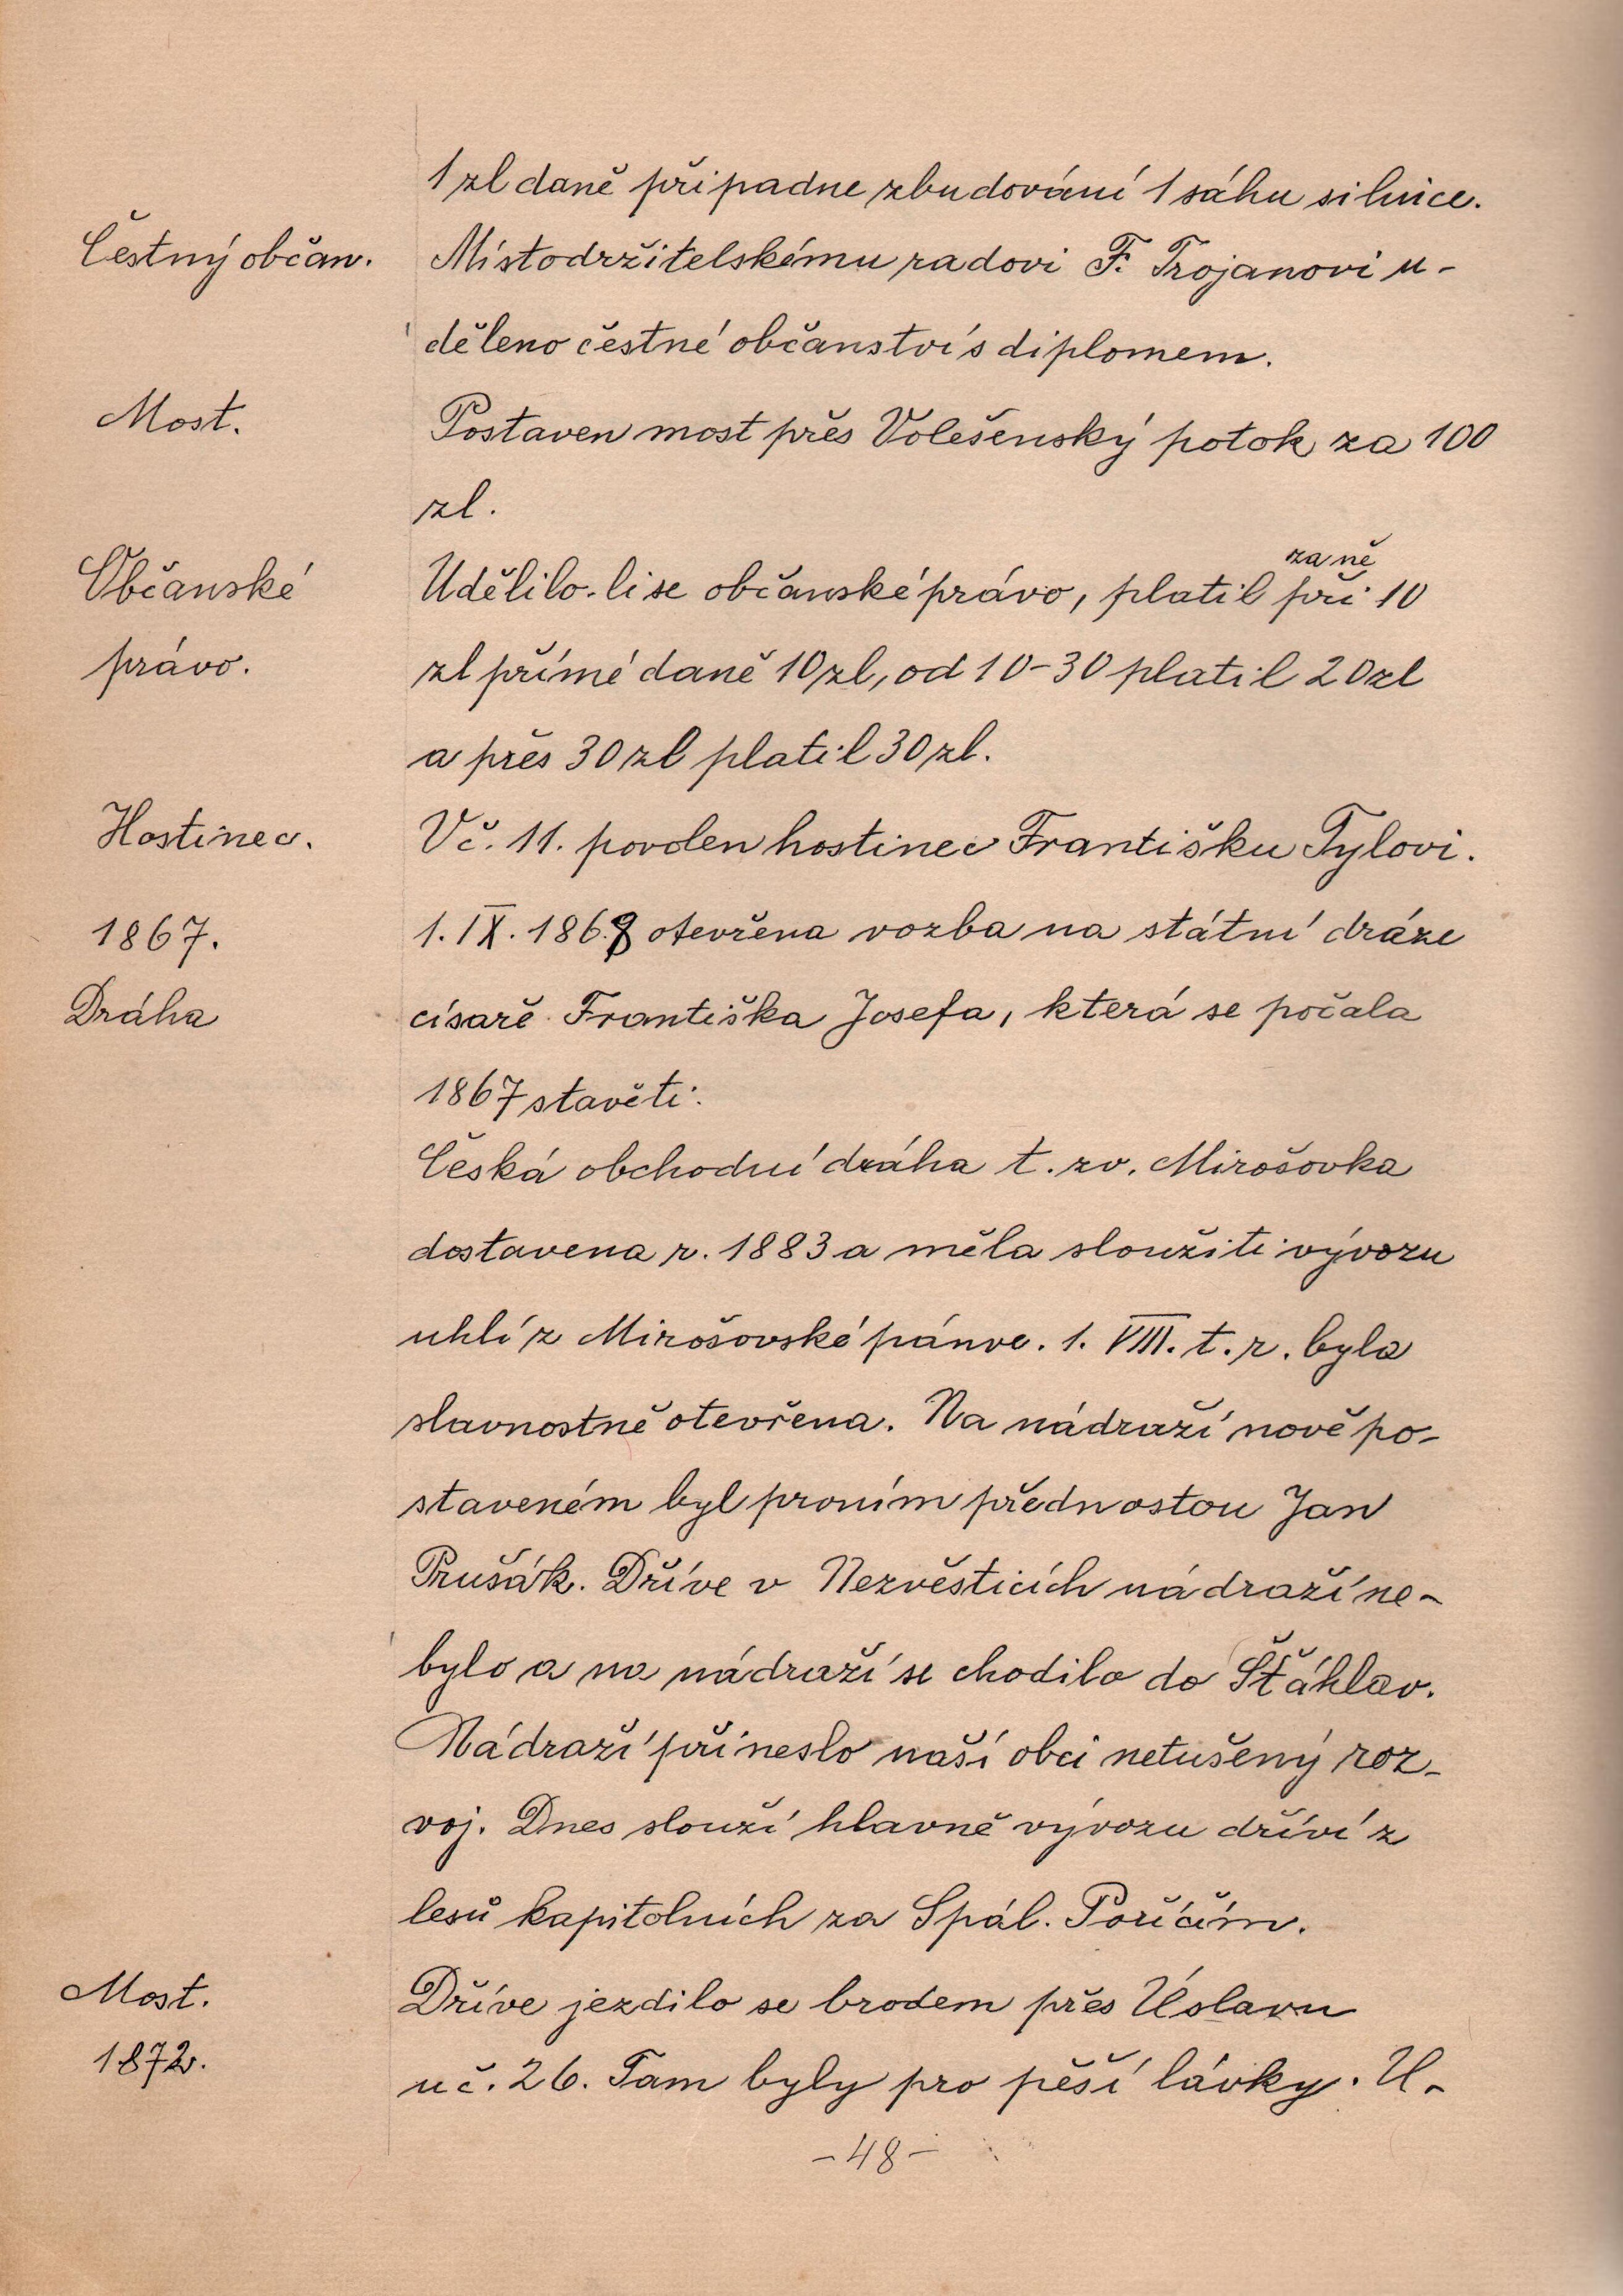 1 zl daně připadne zbudování 1 sáhu silnice.
Čestný občan.
Místodržitelskému radovi F. Trojanovi u-
děleno čestné občanství s diplomem.
Most.
Postaven most přes Volešenský potok za 100
zl.
Občanské
právo.
za ně
Udělilo-li se občanské právo, platil při 10
zl přímé daně 10 zl, od 10-30 platil 20 zl
a přes 30 zl platil 30 zl.
Hostinec.
V č. 11. povolen hostinec Františku Tylovi.
1867.
1. IX. 1868 otevřena vozba na státní dráze
Dráha
císaře Františka Josefa, která se počala
1867 stavěti.
Česká obchodní dráha t. zv. Mirošovka
dostavena r. 1883 a měla sloužiti vývozu
uhlí z Mirošovské pánve. 1. VIII. t. r. byla
slavnostně otevřena. Na nádraží nově po-
staveném byl prvním přednostou Jan
Prušák. Dříve v Nezvěsticích nádraží ne-
bylo a na nádraží se chodilo do Šťáhlav.
Nádraží přineslo naší obci netušený roz-
voj. Dnes slouží hlavně vývozu dříví z
lesů kapitolních za Spál. Poříčím.
Most.
1872.
Dříve jezdilo se brodem přes Úslavu
u č. 26. Tam byly pro pěší lávky. U-
-48-